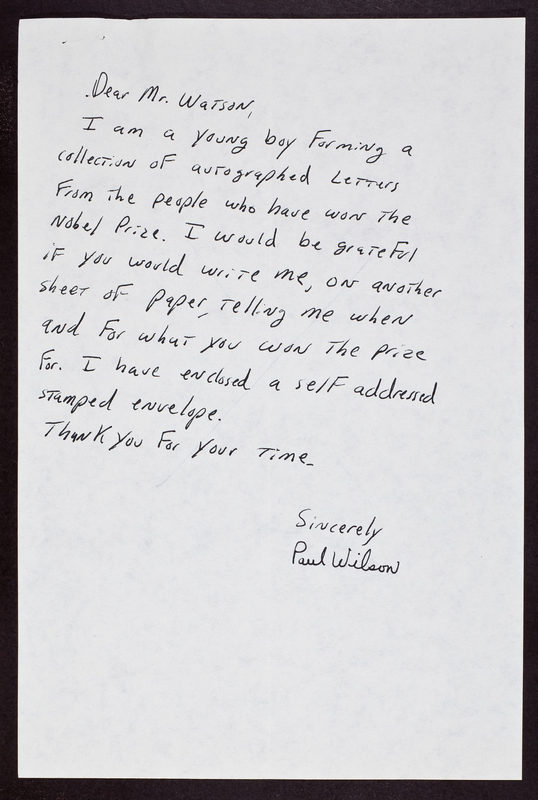 Dear Mr. Watson,
I am a young boy forming a
collection of autographed letters
from the people who have won the
Nobel Prize. I would be grateful
if you would write me, on another
sheet of paper, telling me when
and for what you won the prize
for. I have enclosed a self addressed
stamped envelope.
Thank you for your time.
Sincerely
Paul Wilson